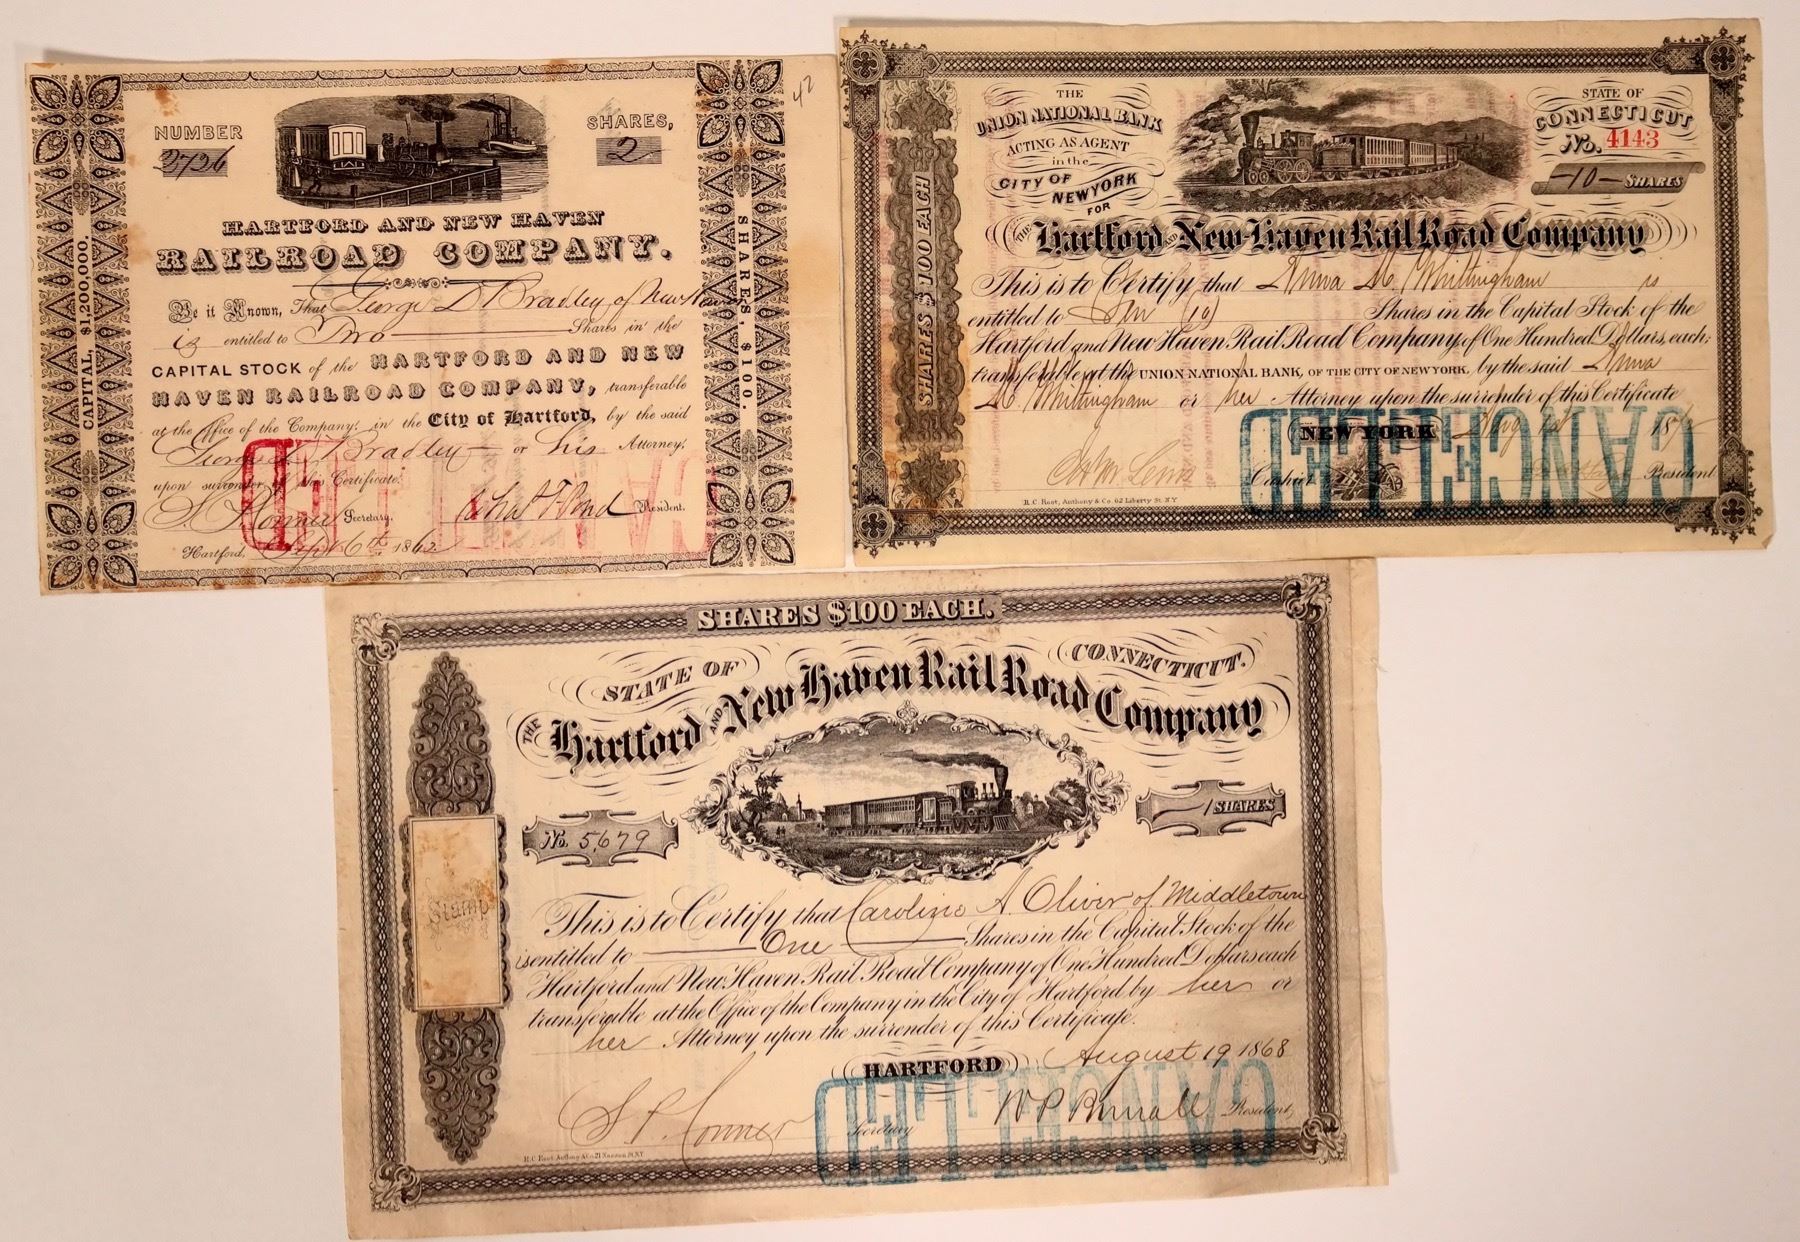 42
NUMBER
2726
SHARES,
2
CAPITAL, $1,200,000,
SHARES, $100.
HARTFORD AND NEW HAVEN
RAILROAD COMPANY.
Be it Known, That George D Bradley of New Haven
is entitled to Two Shares in the
CAPITAL STOCK of the HARTFORD AND NEW
HAVEN RAILROAD COMPANY, transferable
at the Office of the Company, in the City of Hartford, by the said
George D Bradley or his Attorney,
upon surrender of this Certificate.
Secretary.
President.
Hartford, Sept 6th 1862
CANCELLED
THE
UNION NATIONAL BANK
ACTING AS AGENT
in the
CITY OF
NEW YORK
FOR
STATE OF
CONNECTICUT
No. 4143
-10- SHARES
SHARES $100 EACH
THE Hartford AND New Haven Rail Road Company
This is to Certify that Anna M. Whittingham is
entitled to Ten (10) Shares in the Capital Stock of the
Hartford and New Haven Rail Road Company of One Hundred Dollars, each;
transferable at the UNION NATIONAL BANK, OF THE CITY OF NEW YORK, by the said Anna
M. Whittingham or her Attorney upon the surrender of this Certificate
NEW YORK
Cashier
President
R.C. Root, Anthony & Co. 62 Liberty St. N.Y
CANCELLED
SHARES $100 EACH.
STATE OF CONNECTICUT.
THE Hartford AND New Haven Rail Road Company
No. 5,679
1 SHARES
Stamp
This is to Certify that Caroline A. Oliver of Middletown
is entitled to One Shares in the Capital Stock of the
Hartford and New Haven Rail Road Company of One Hundred Dollars each
transferable at the Office of the Company in the City of Hartford by her or
her Attorney upon the surrender of this Certificate.
HARTFORD August 19 1868
Secretary
President
R.C. Root, Anthony & Co. 21 Nassau St. N.Y
CANCELLED